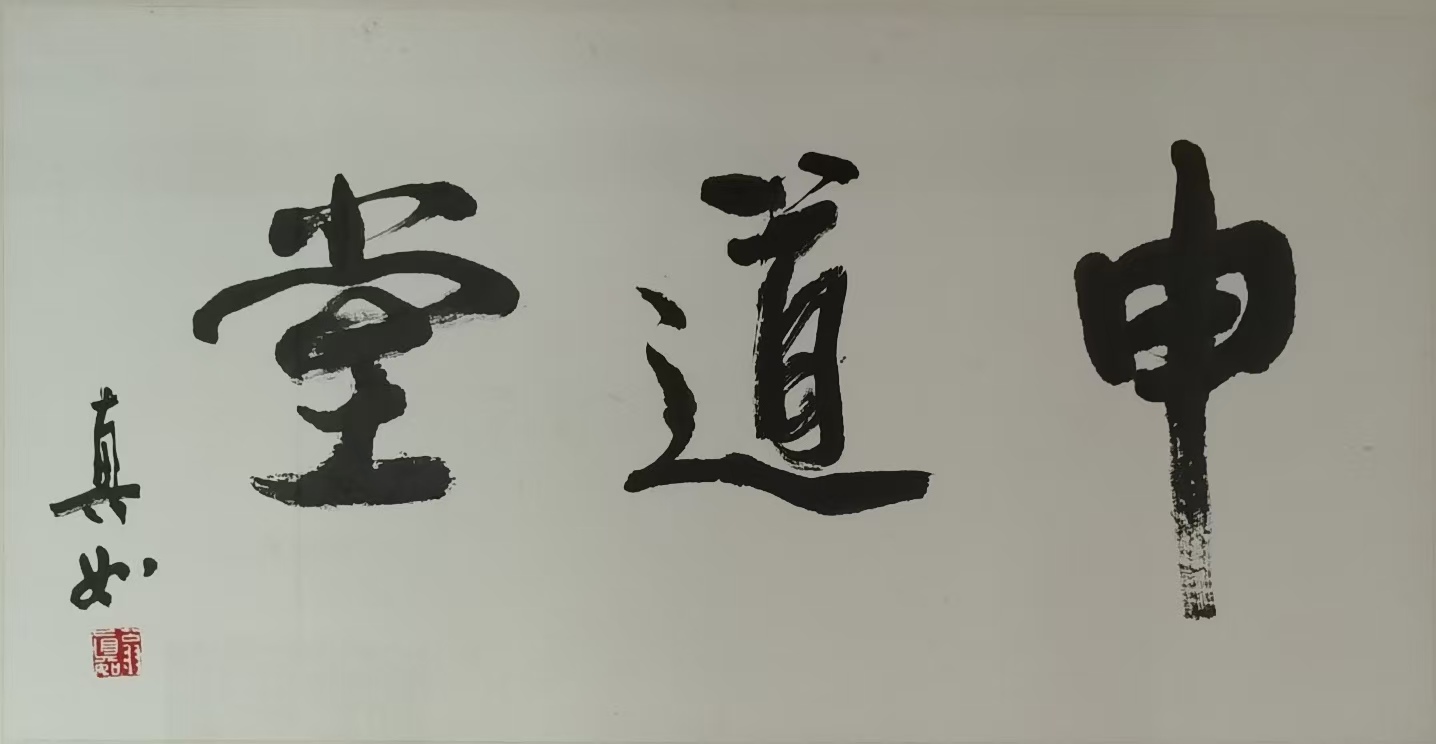 申道堂
真如